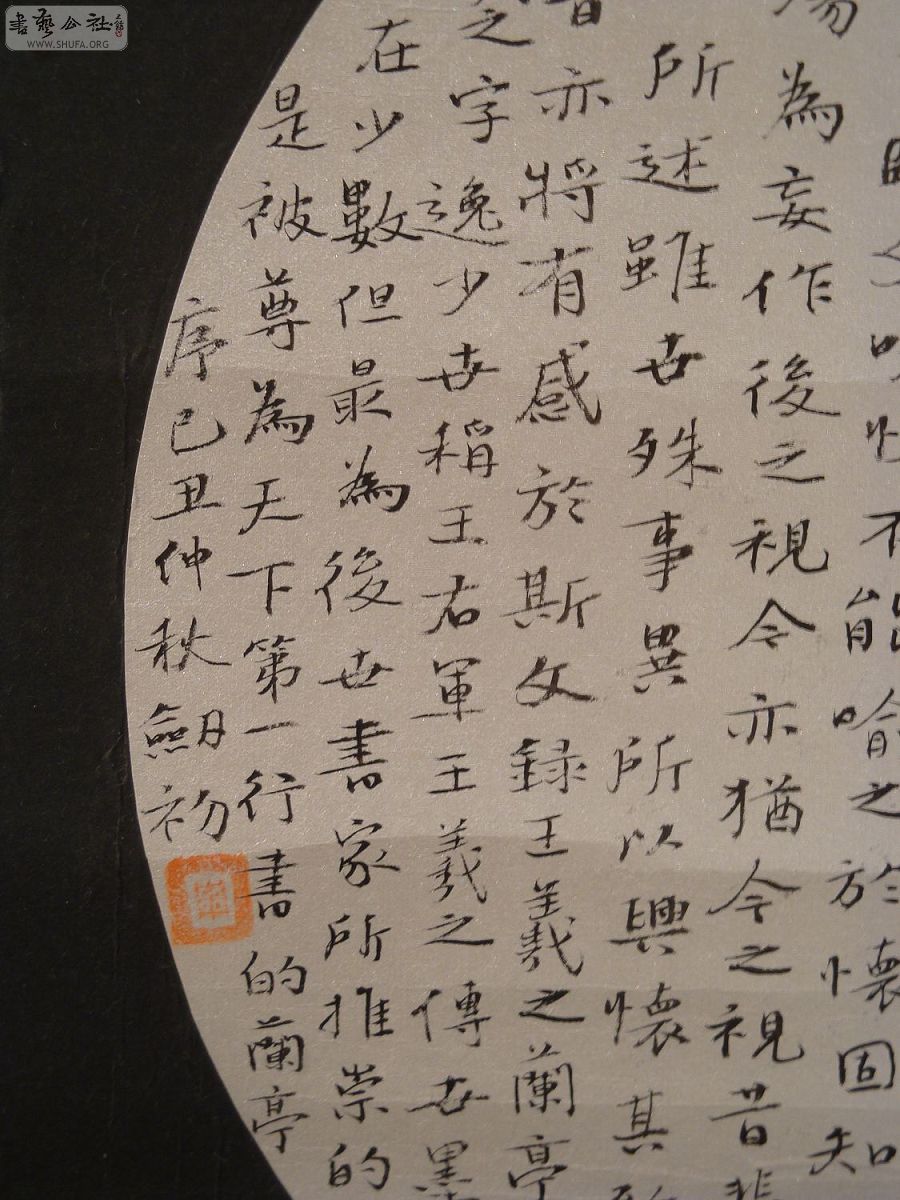 書藝公社
WWW.SHUFA.ORG
不能喻之於懷固知
為妄作後之視今亦猶今之視昔悲
所述雖世殊事異所以興懷其致
亦將有感於斯文錄王羲之蘭亭
之字逸少世稱王右軍王羲之傳世墨
在少數但最為後世書家所推崇的
是被尊為天下第一行書的蘭亭
序己丑仲秋劔初